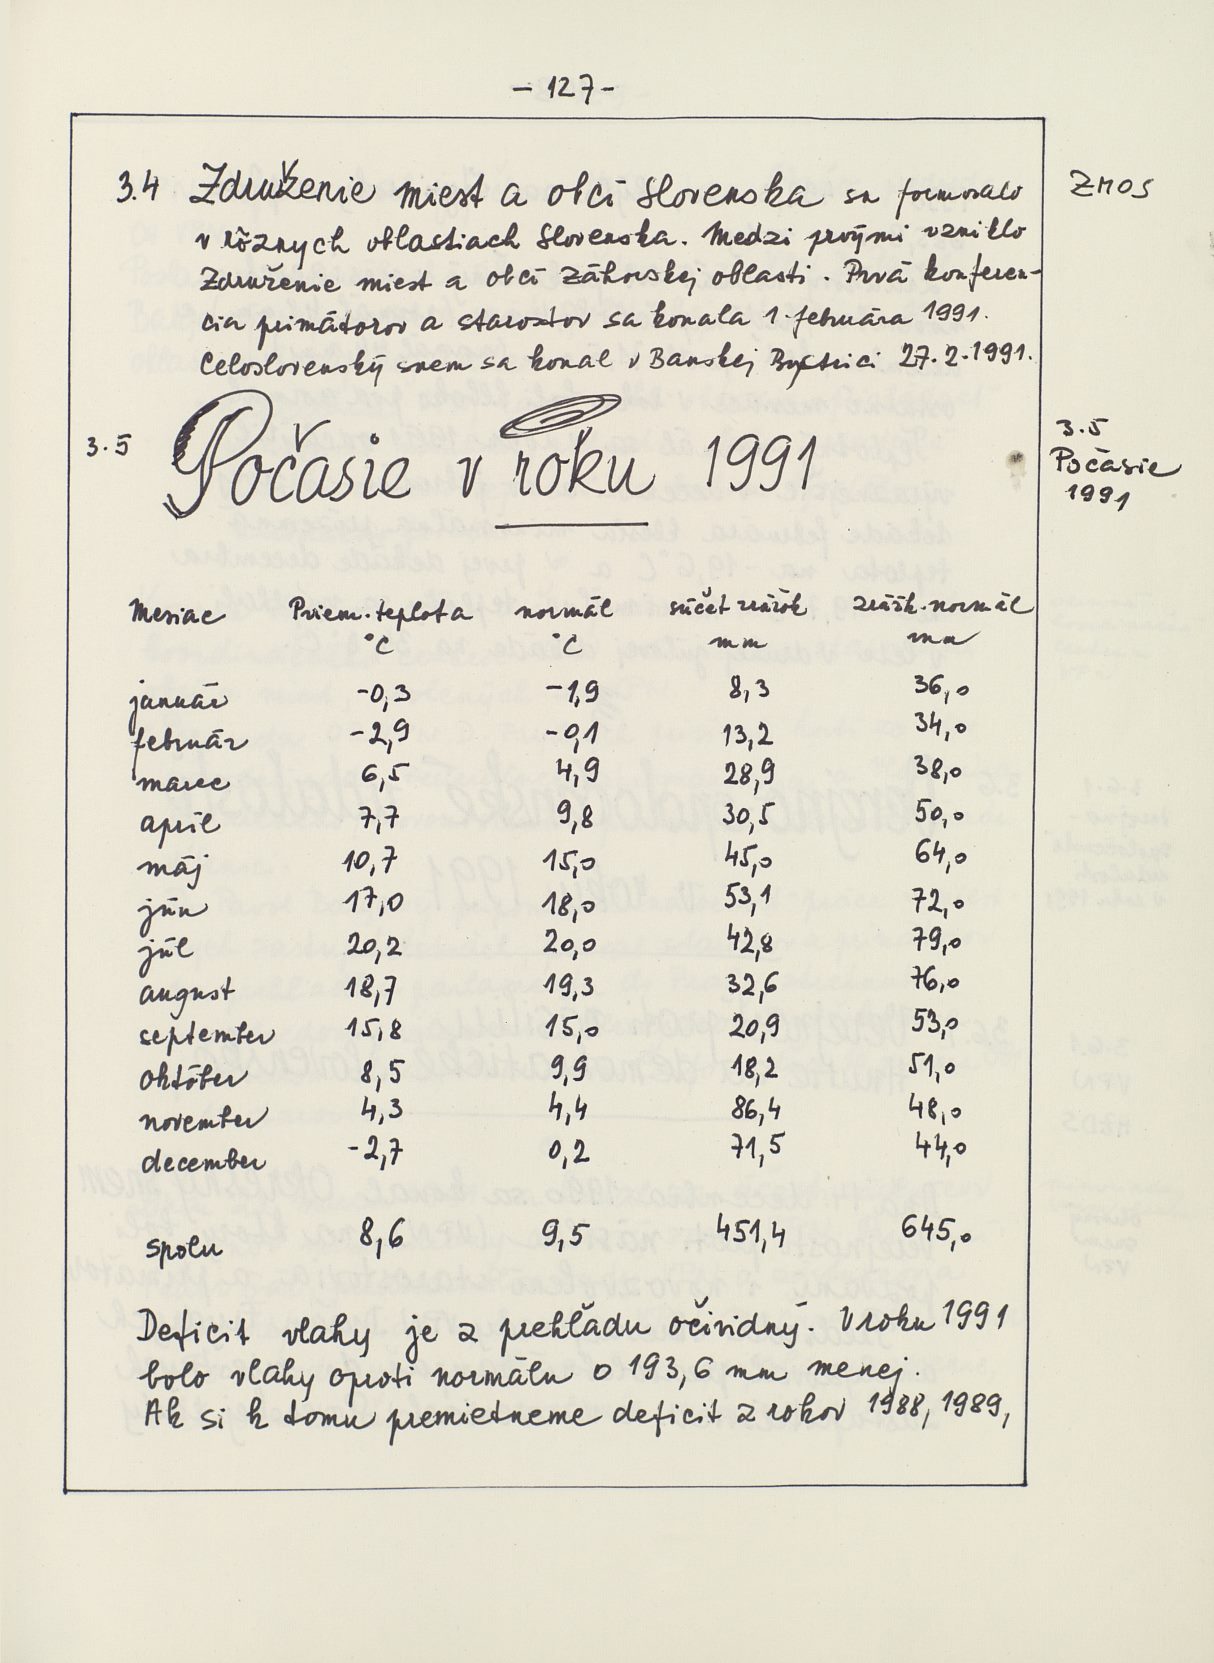 - 127 -
3.4 Združenie miest a obcí Slovenska sa formovalo
ZMOS
v rôznych oblastiach Slovenska. Medzi prvými vzniklo
Združenie miest a obcí záhorskej oblasti. Prvá konferen-
cia primátorov a starostov sa konala 1. februára 1991.
Celoslovenský snem sa konal v Banskej Bystrici 27.2.1991.
3.5 Počasie v roku 1991
3.5
Počasie
1991
Mesiac Priem. teplota normál súčet zrážok zrážk. normál
°C °C mm mm
január -0,3 -1,9 8,3 36,0
február -2,9 -0,1 13,2 34,0
marec 6,5 4,9 28,9 38,0
apríl 7,7 9,8 30,5 50,0
máj 10,7 15,0 45,0 64,0
jún 17,0 18,0 53,1 72,0
júl 20,2 20,0 42,8 79,0
august 18,7 19,3 32,6 76,0
september 15,8 15,0 20,9 53,0
október 8,5 9,9 18,2 51,0
november 4,3 4,4 86,4 48,0
december -2,7 0,2 71,5 44,0
spolu 8,6 9,5 451,4 645,0
Deficit vlahy je z prehľadu očividný. V roku 1991
bolo vlahy oproti normálu o 193,6 mm menej.
Ak si k tomu premietneme deficit z rokov 1988, 1989,